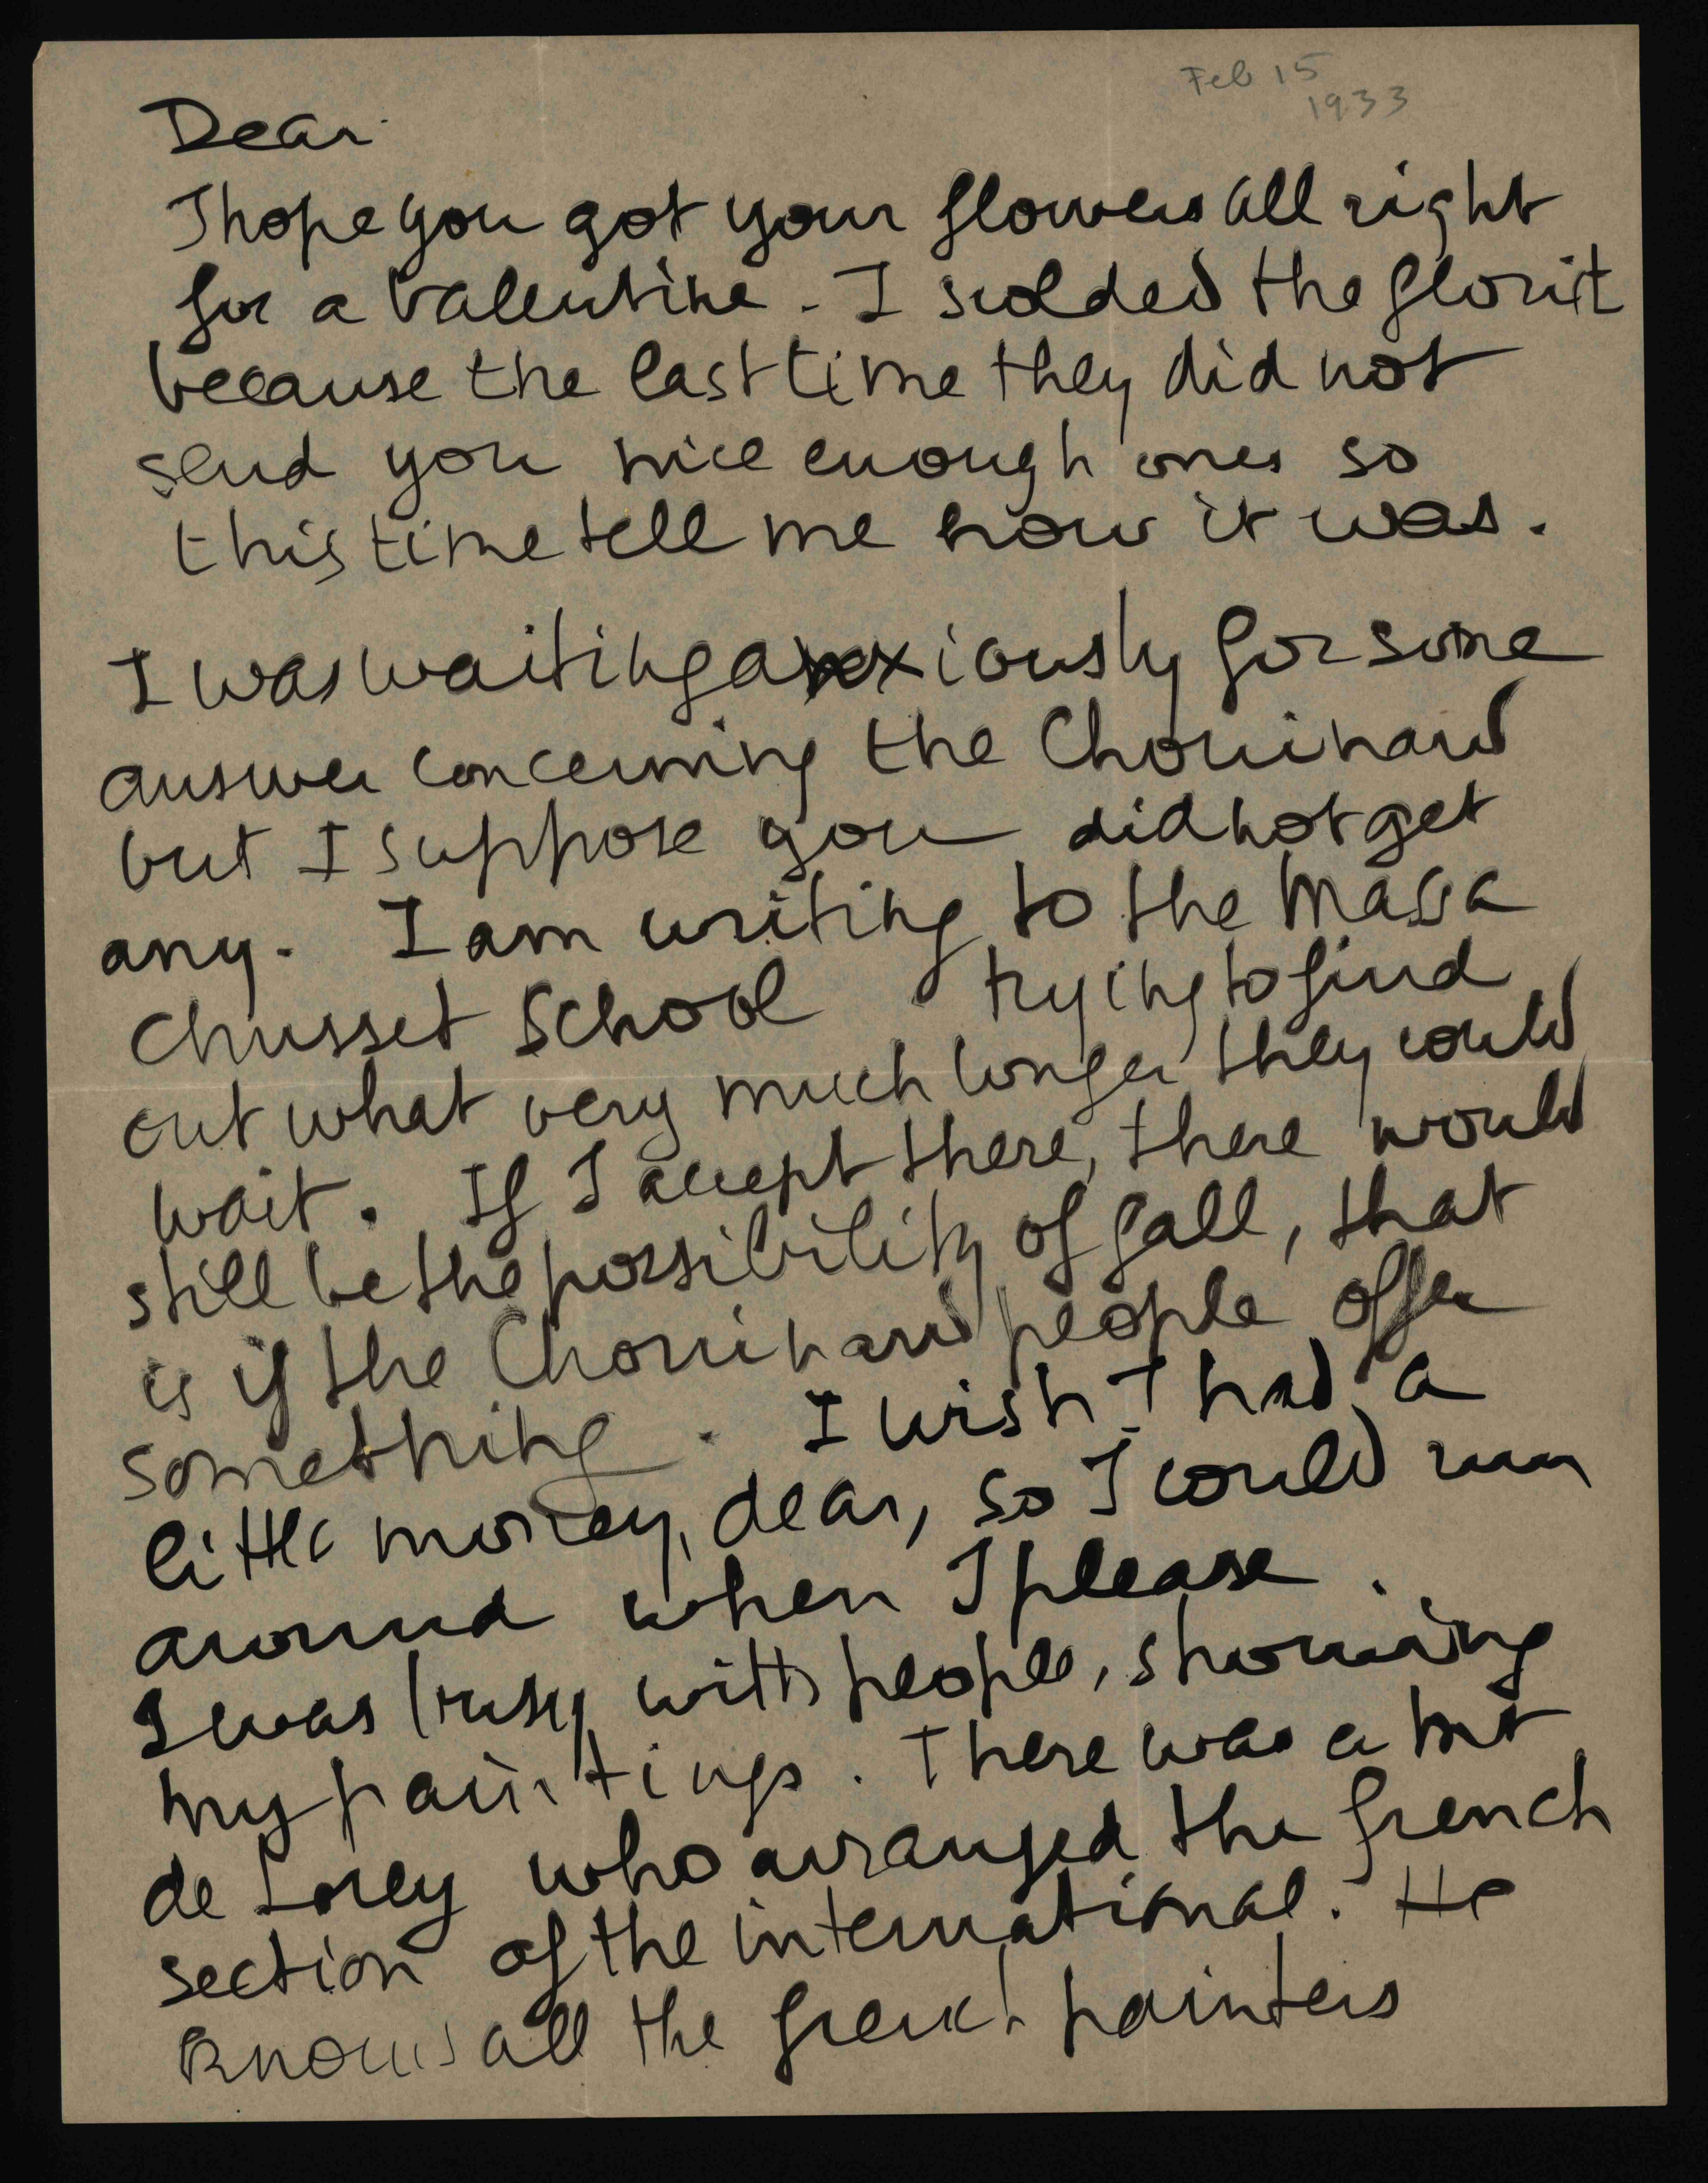 Feb 15
1933
Dear
I hope you got your flowers all right
for a valentine. I scolded the florist
because the last time they did not
send you nice enough ones so
this time tell me how it was.
I was waiting anxiously for some
answer concerning the Chouinard
but I suppose you did not get
any. I am writing to the Massa
chusset School trying to find
out what very much longer they could
wait. If I accept there, there would
still be the possibility of fall, that
is if the Chouinard people offer
something. I wish I had a
little money, dear, so I could run
around when I please.
I was busy with people, showing
my paintings. There was a
de Lorey who arranged the french
section of the international. He
knows all the french painters